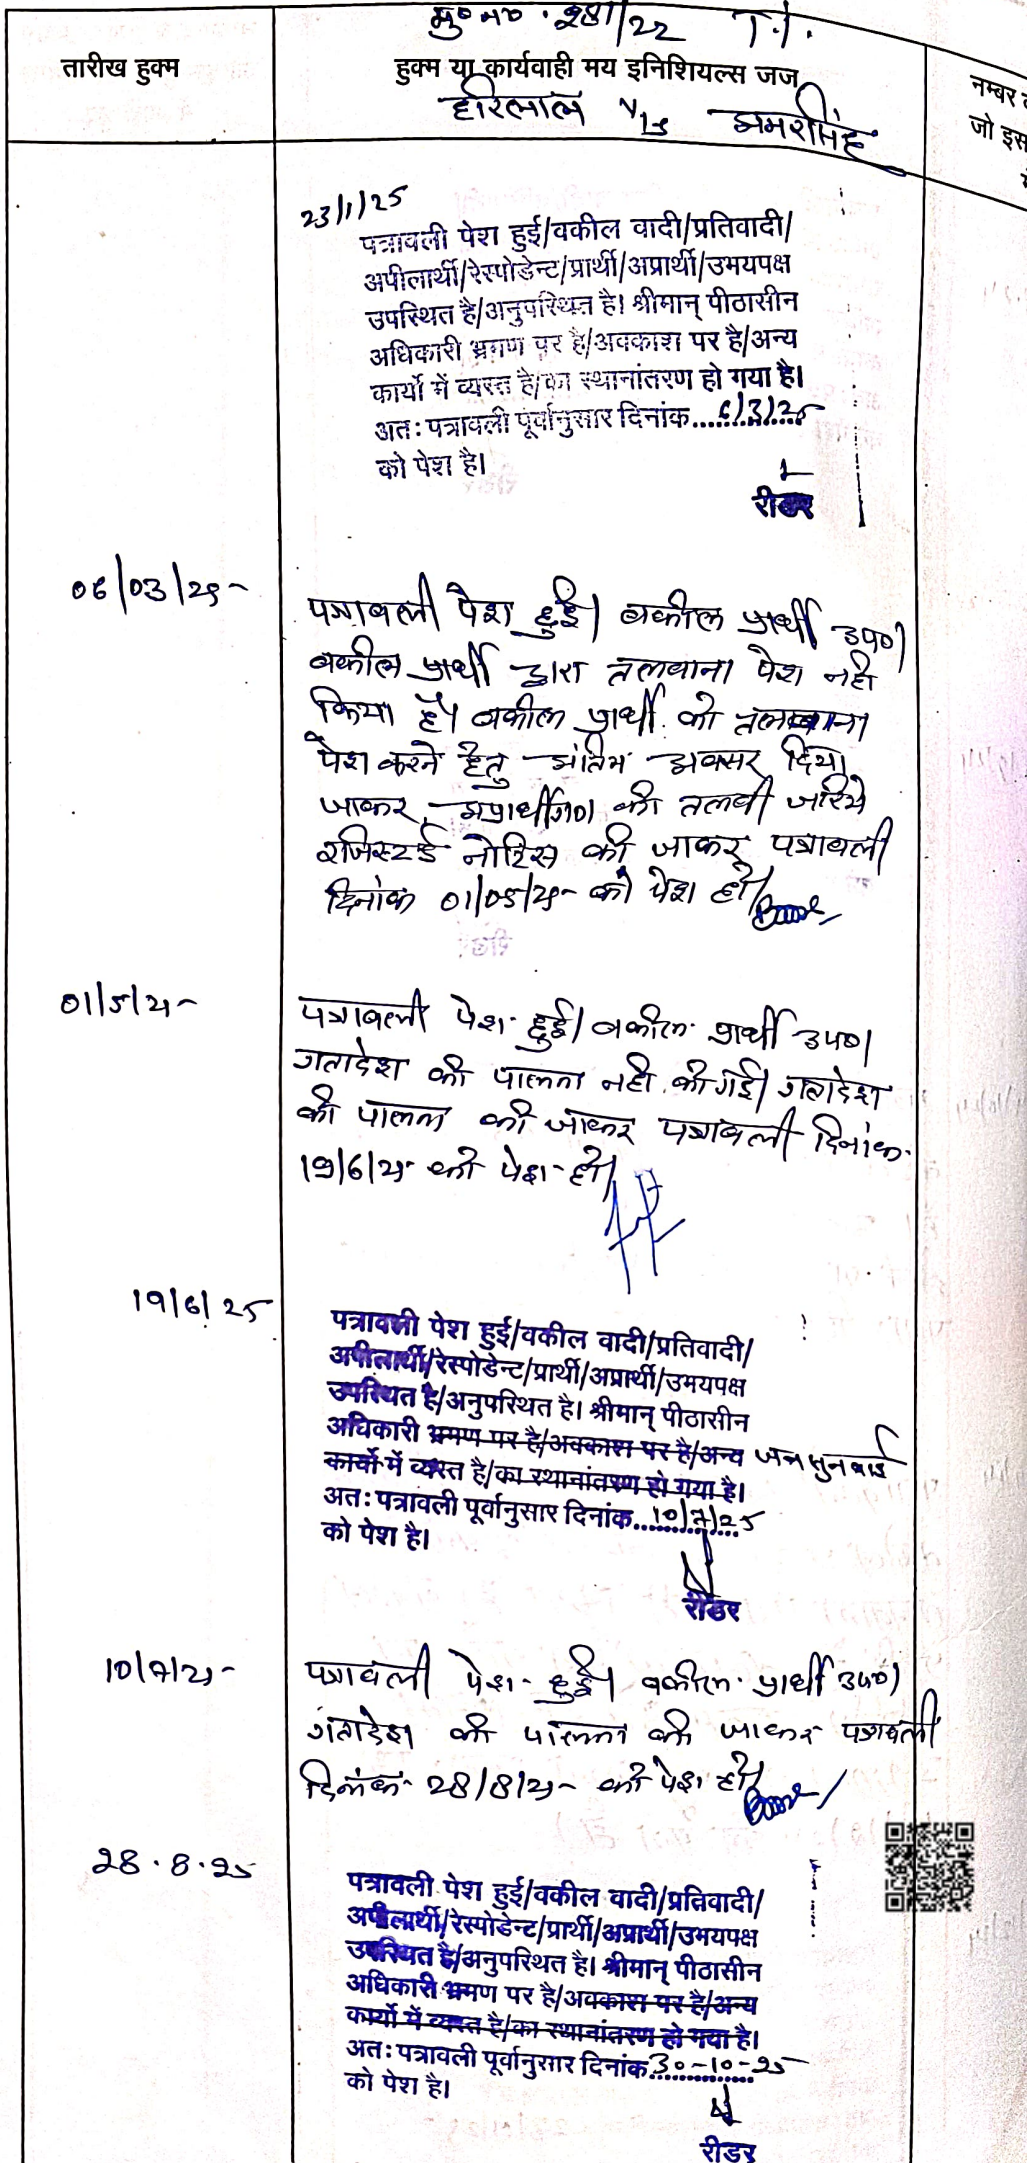 मु० न० . 281/22 T.I.
तारीख हुक्म
हुक्म या कार्यवाही मय इनिशियल्स जज
नम्बर
जो इस
हरिलाल V/s अमरसिंह
23/1/25
पत्रावली पेश हुई/वकील वादी/प्रतिवादी/
अपीलार्थी/रेस्पोडेन्ट/प्रार्थी/अप्रार्थी/उभयपक्ष
उपस्थित है/अनुपस्थित है। श्रीमान् पीठासीन
अधिकारी भ्रमण पर है/अवकाश पर है/अन्य
कार्यो में व्यस्त है/का स्थानांतरण हो गया है।
अत: पत्रावली पूर्वानुसार दिनांक...6/3/25
को पेश है।
रीडर
06/03/25
पत्रावली पेश हुई। वकील प्रार्थी उप०।
वकील प्रार्थी द्वारा तलवाना पेश नही
किया है। वकील प्रार्थी को तलवाना
पेश करने हेतु अंतिम अवसर दिया
जाकर अप्रार्थीगण की तलवी जरिये
रजिस्टर्ड नोटिस की जाकर पत्रावली
दिनांक 01/05/25 को पेश हो।
01/5/25
पत्रावली पेश हुई। वकील प्रार्थी उप०।
गतादेश की पालना नही की गई। गतादेश
की पालना की जाकर पत्रावली दिनांक
19/6/25 को पेश हो।
19/6/25
पत्रावली पेश हुई/वकील वादी/प्रतिवादी/
अपीलार्थी/रेस्पोडेन्ट/प्रार्थी/अप्रार्थी/उभयपक्ष
उपस्थित है/अनुपस्थित है। श्रीमान् पीठासीन
अधिकारी भ्रमण पर है/अवकाश पर है/अन्य जन सुनवाई
कार्यो में व्यस्त है/का स्थानांतरण हो गया है।
अत: पत्रावली पूर्वानुसार दिनांक...10/7/25
को पेश है।
रीडर
10/7/25
पत्रावली पेश हुई। वकील प्रार्थी उप०।
गतादेश की पालना की जाकर पत्रावली
दिनांक 28/8/25 को पेश हो।
28.8.25
पत्रावली पेश हुई/वकील वादी/प्रतिवादी/
अपीलार्थी/रेस्पोडेन्ट/प्रार्थी/अप्रार्थी/उभयपक्ष
उपस्थित है/अनुपस्थित है। श्रीमान् पीठासीन
अधिकारी भ्रमण पर है/अवकाश पर है/अन्य
कार्यो में व्यस्त है/का स्थानांतरण हो गया है।
अत: पत्रावली पूर्वानुसार दिनांक 30-10-25
को पेश है।
रीडर